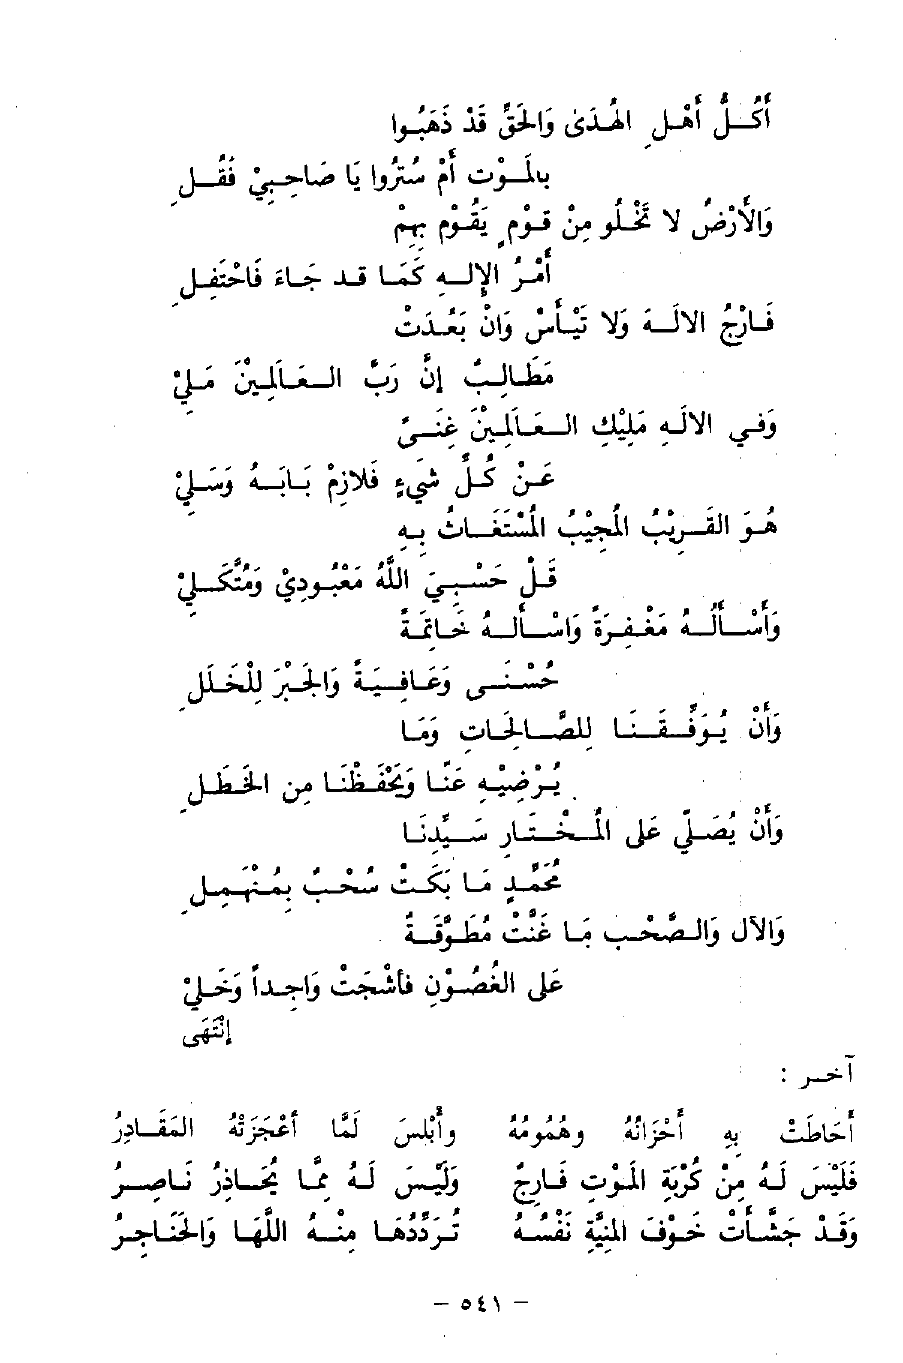 أَكُلُّ أَهْلِ الْهُدَىٰ وَالحَقِّ قَدْ ذَهَبُوا
بالمَوْتِ أَمْ سُتِرُوا يَا صَاحِبِيْ فَقُلِ
وَالأَرْضُ لا تَخْلُو مِنْ قَوْمٍ يَقُوْمُ بِهِمْ
أَمْرُ الإِلهِ كَمَا قد جَاءَ فَاحْتَفِلِ
فَارْجُ الالَهَ وَلا تَيْأَسْ وَانْ بَعُدَتْ
مَطَالِبٌ إِنَّ رَبَّ العَالَمِيْنَ مَلِيْ
وَفي الالَهِ مَلِيْكِ العَالَمِيْنَ غِنَىً
عَنْ كُلِّ شَيْءٍ فَلازِمْ بَابَهُ وَسَلِيْ
هُوَ القَرِيْبُ المُجِيْبُ المُسْتَغَاثُ بِهِ
قُلْ حَسْبِيَ اللَّهُ مَعْبُودِيْ وَمُتَّكَلِيْ
وَأَسْأَلُهُ مَغْفِرَةً وَاسْأَلهُ خَاتِمَةً
حُسْنَى وَعَافِيَةً وَالجَبْرَ لِلْخَلَلِ
وَأَنْ يُوَفِّقَنَا لِلصَّالِحَاتِ وَمَا
يُرْضِيْهِ عَنَّا وَيَحْفَظْنَا مِن الخَطَلِ
وَأَنْ يُصَلِّيْ عَلى المُخْتَارِ سَيِّدِنَا
مُحَمَّدٍ مَا بَكَتْ سُحْبٌ بِمُنْهَمِلِ
وَالآلِ وَالصَّحْبِ مَا غَنَّتْ مُطَوَّقَةٌ
عَلى الغُصُوْنِ فأشْجَتْ وَاجِداً وَخَلِيْ
إنْتَهَى
آخر :
أَحَاطَتْ بِهِ أَحْزَانُهُ وهُمُومُهُ وأَبْلَسَ لَمَّا أَعْجَزَتْهُ المَقَادِرُ
فَلَيْسَ لَهُ مِنْ كُرْبَةِ المَوْتِ فَارِجٌ وَلَيْسَ لَهُ مِمَّا يُحَاذِرُ نَاصِرُ
وَقَدْ جَشَّأَتْ خَوْفَ المَنِيَّةِ نَفْسُهُ تُرَدِّدُهَا مِنْهُ اللَّهَا وَالحَنَاجِرُ
– ٥٤١ –